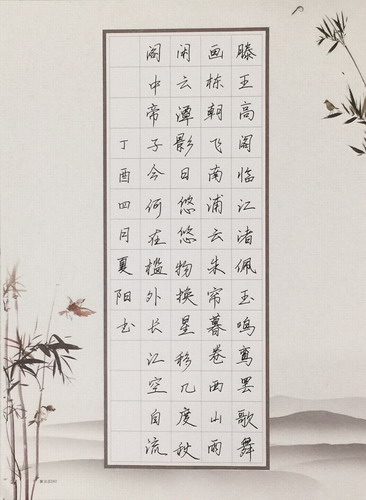 滕王高阁临江渚佩玉鸣鸾罢歌舞
画栋朝飞南浦云朱帘暮卷西山雨
闲云潭影日悠悠物换星移几度秋
阁中帝子今何在槛外长江空自流
丁酉四月夏阳书